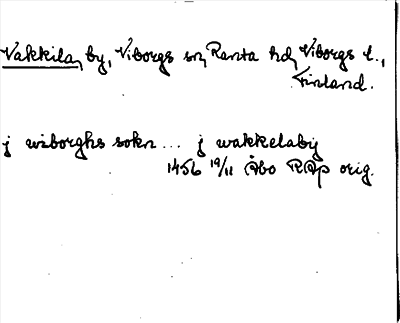 Vakkila, by, Viborgs sn, Ranta hd, Viborgs l.,
Finland.
j wiborghs sokn ... j wakkelaby
1456 19/11 Åbo RAp orig.